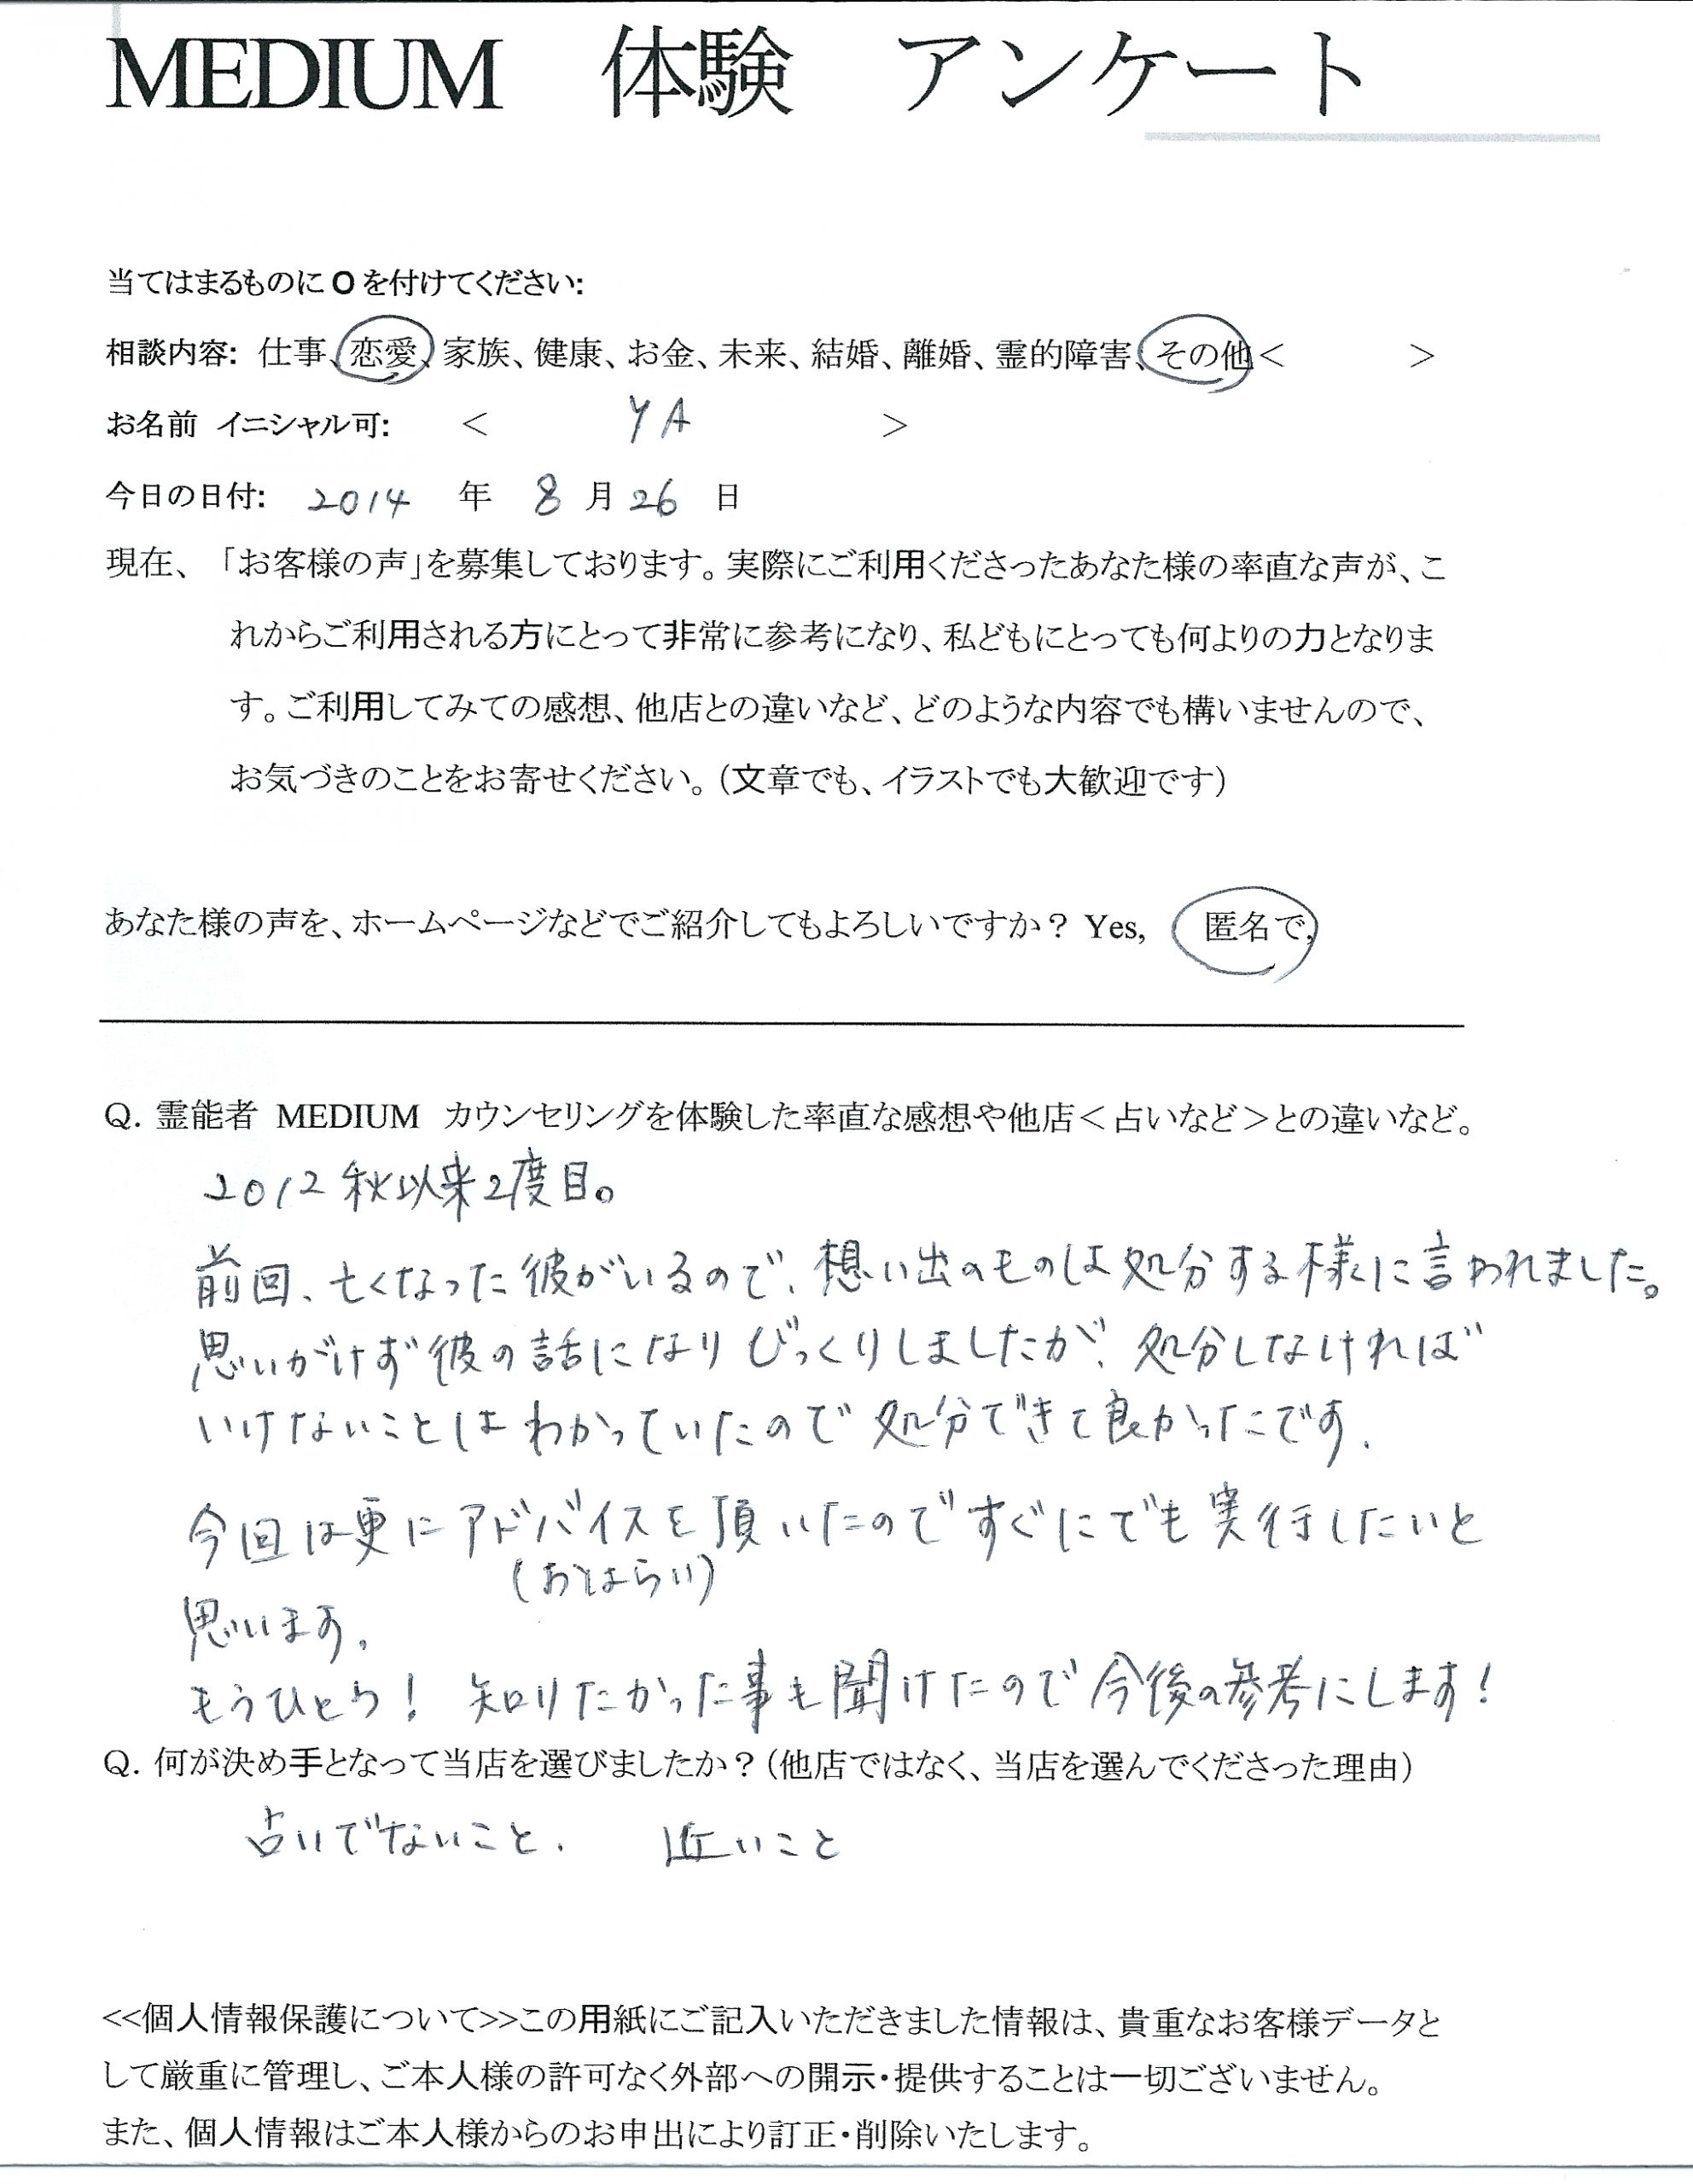 MEDIUM 体験 アンケート
当てはまるものにOを付けてください:
相談内容: 仕事、恋愛、家族、健康、お金、未来、結婚、離婚、霊的障害、その他< >
お名前 イニシャル可: < YA >
今日の日付: 2014 年 8 月 26 日
現在、「お客様の声」を募集しております。実際にご利用くださったあなた様の率直な声が、こ
れからご利用される方にとって非常に参考になり、私どもにとっても何よりの力となりま
す。ご利用してみての感想、他店との違いなど、どのような内容でも構いませんので、
お気づきのことをお寄せください。(文章でも、イラストでも大歓迎です)
あなた様の声を、ホームページなどでご紹介してもよろしいですか? Yes, 匿名で,
Q. 霊能者 MEDIUM カウンセリングを体験した率直な感想や他店<占いなど>との違いなど。
2012秋以来2度目。
前回、亡くなった彼がいるので、想い出のものは処分する様に言われました。
思いがけず彼の話になりびっくりしましたが、処分しなければ
いけないことはわかっていたので処分できて良かったです.
今回は更にアドバイスを頂いたのですぐにでも実行したいと
(おはらい)
思います.
もうひとつ! 知りたかった事も聞けたので今後の参考にします!
Q. 何が決め手となって当店を選びましたか?(他店ではなく、当店を選んでくださった理由)
占いでないこと. 近いこと
<<個人情報保護について>>この用紙にご記入いただきました情報は、貴重なお客様データと
して厳重に管理し、ご本人様の許可なく外部への開示・提供することは一切ございません。
また、個人情報はご本人様からのお申出により訂正・削除いたします。